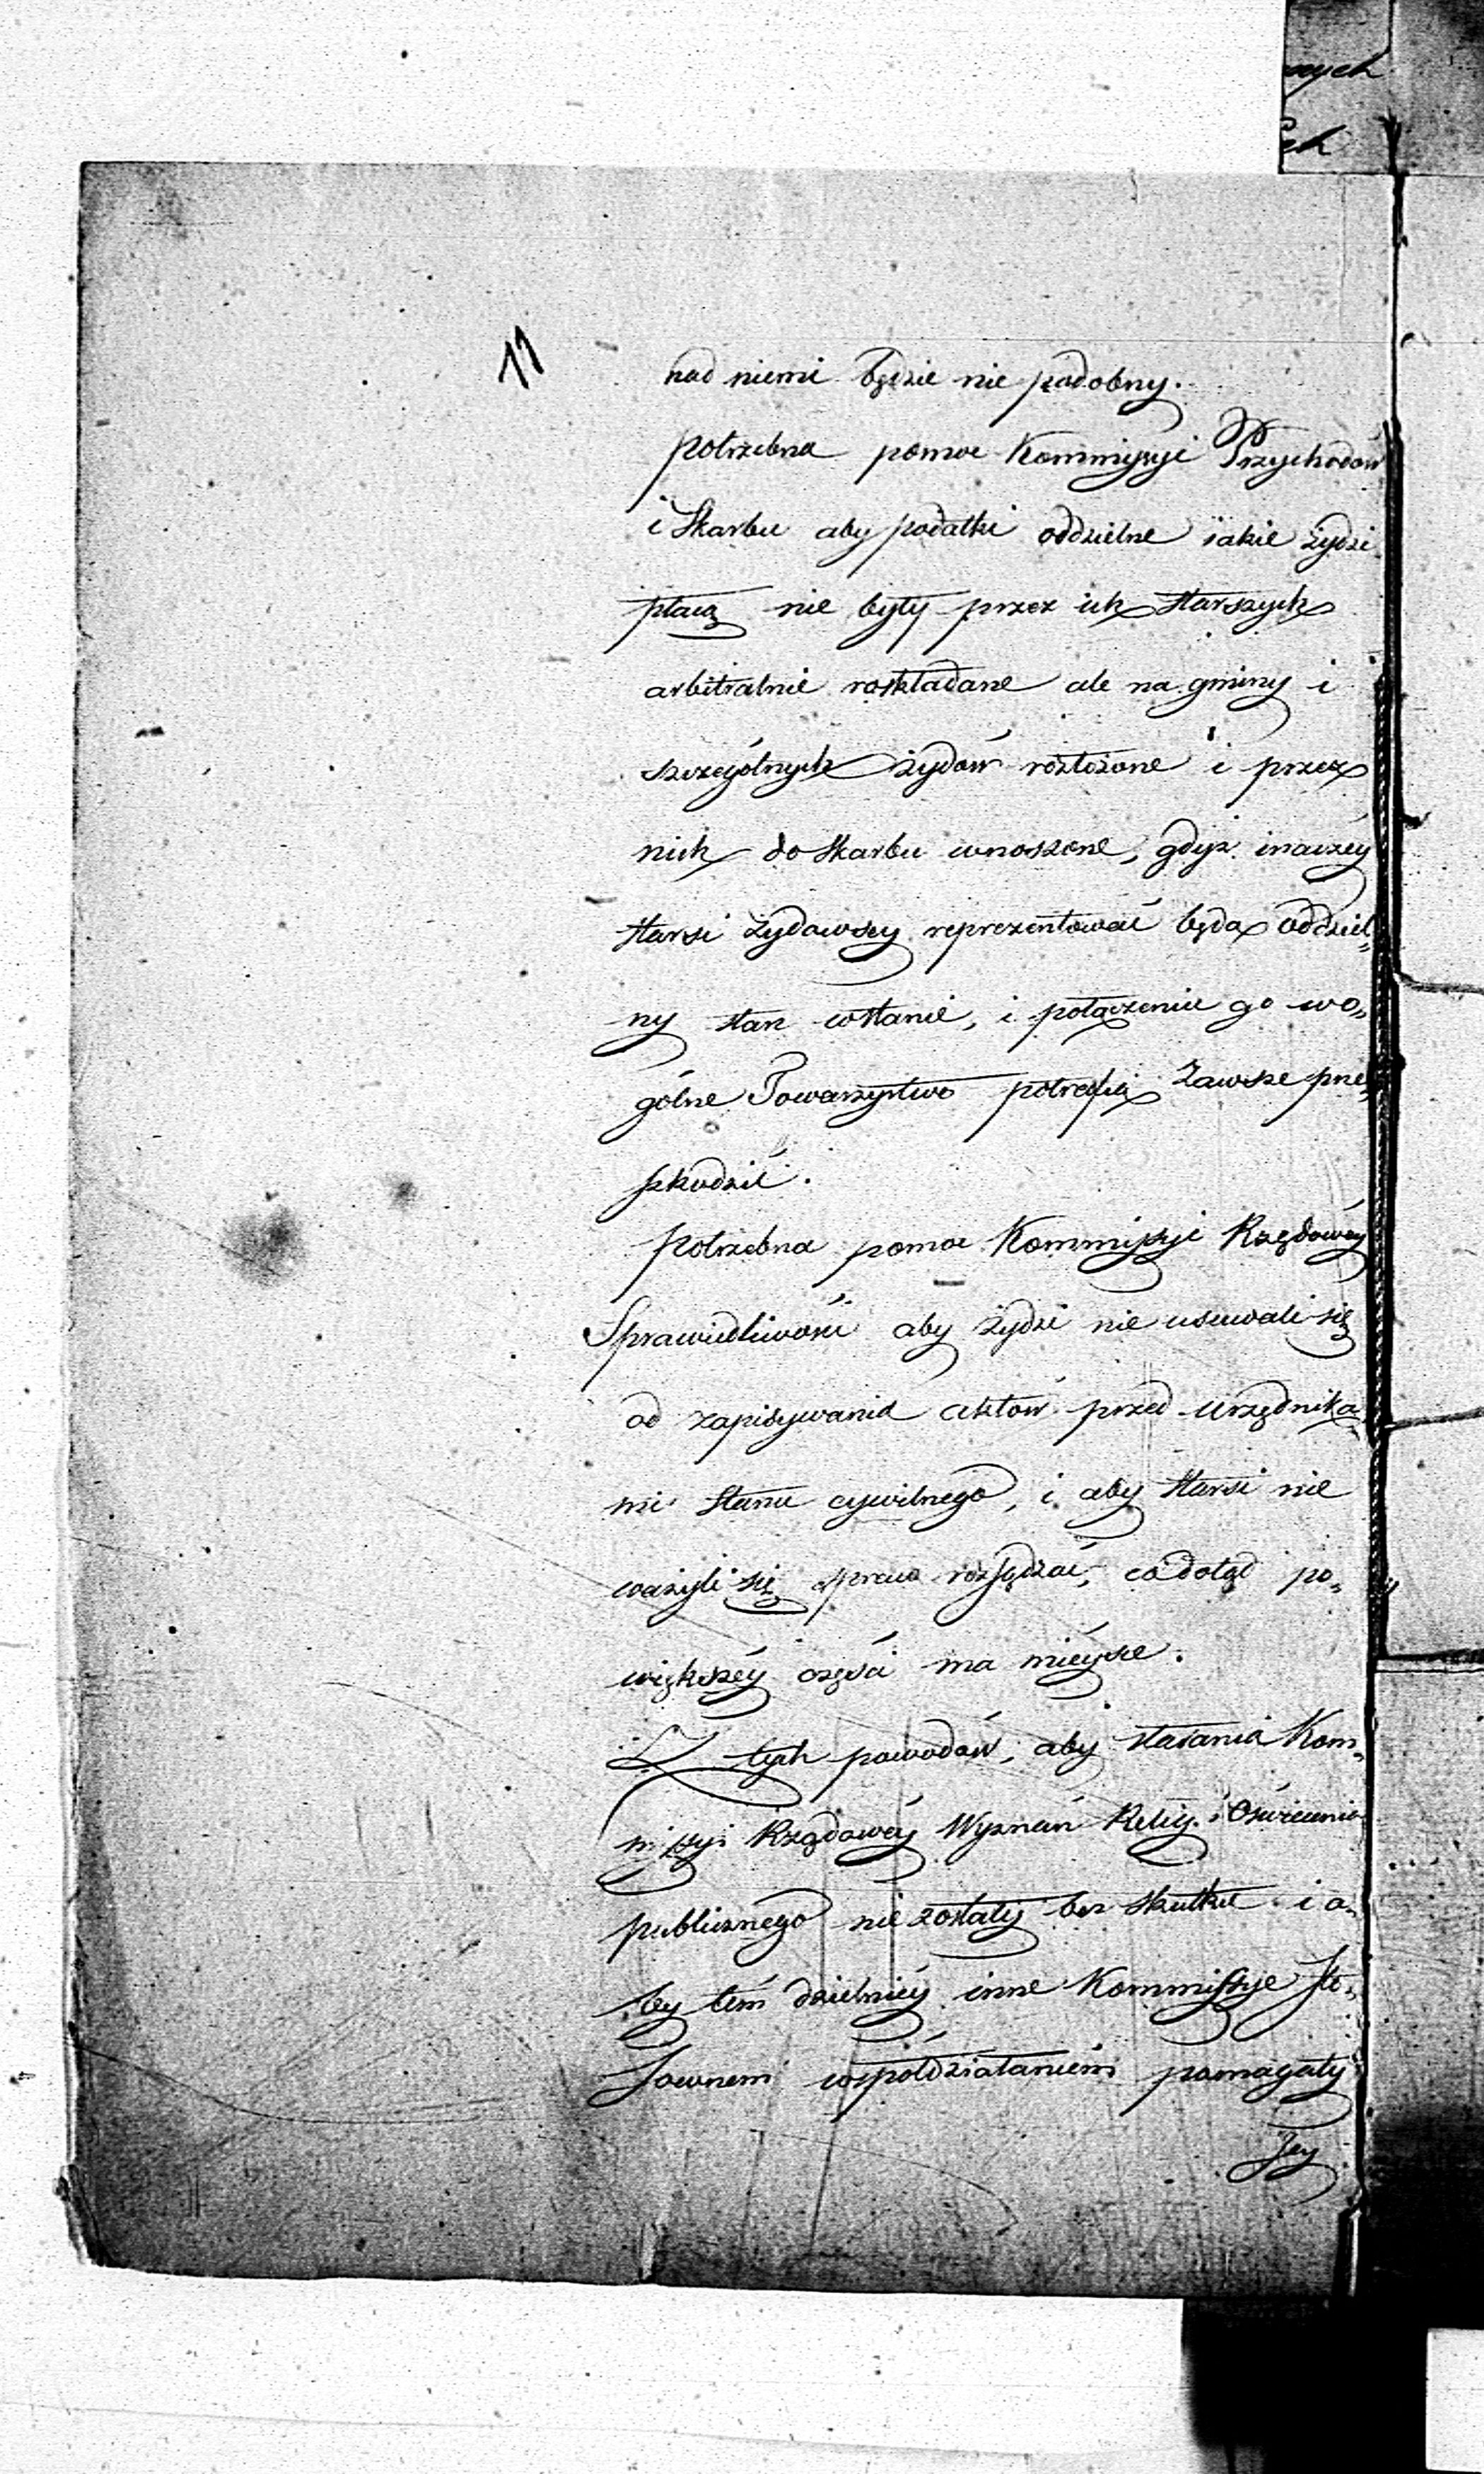 wych
ch
11
nad niemi będzie nie podobny.
potrzebna pomoc Kommissyi Przychodów
i Skarbu aby podatki oddzielne iakie żydzi
płacą nie były przez ich starszych
arbitralnie roskładane ale na gminy i
szczególnych żydów rozłożone i przez
nich do skarbu wnoszone, gdyż inaczéy
starsi żydowscy reprezentować będą oddziel„
ny stan w stanie, i połączeniu go w o„
gólne Towarzystwo potrafią zawsze prze„
szkodzić.
potrzebna pomoc Kommissyi Rządowéy
Sprawiedliwości aby żydzi nie usuwali się
od zapisywania aktów przed urzędnika„
mi stanu cywilnego, i aby starsi nie
ważyli się spraw rozsądzać, co dotąd po„
większéy części ma mieysce.
Z tych powodów, aby starania Kom„
missyi Rządowéy Wyznań Relig. i Oświecenia
publicznego nie zostały bez skutku i a„
by tém dzielniéy inne Kommissye sto„
sownem współdziałaniem pomagały
Jey